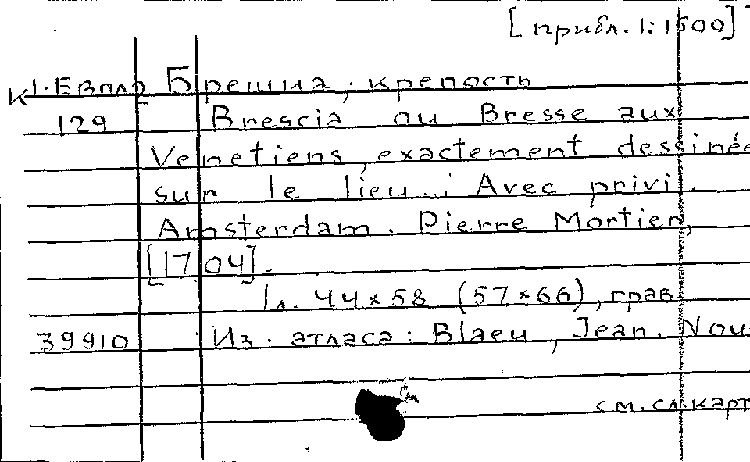 [прибл. 1:1500]
К 1-Евпл2 Брешиа, крепость
129 Brescia ou Bresse aux
Venetiens, exactement dessinée
sur le lieu... Avec privi.
Amsterdam. Pierre Mortier,
[1704].
1 л. 44×58 (57×66), грав
39910 Из атласа: Blaeu, Jean. Nou
см. сл. карт